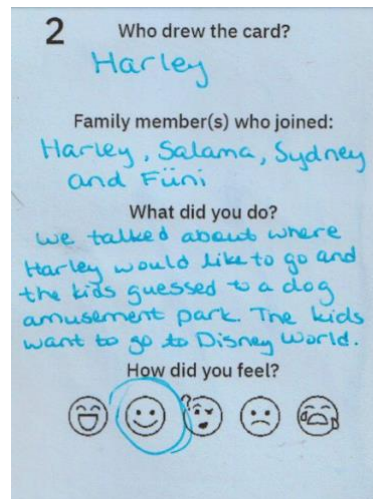 2 Who drew the card?
Harley
Family member(s) who joined:
Harley, Salama, Sydney
and Füni
What did you do?
We talked about where
Harley would like to go and
the kids guessed to a dog
amusement park. The kids
want to go to Disney World.
How did you feel?